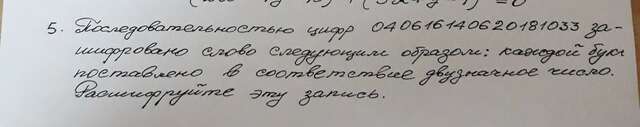 5. Последовательностью цифр 040616140620181033 за-
шифровано слово следующим образом: каждой бук
поставлено в соответствие двузначное число.
Расшифруйте эту запись.